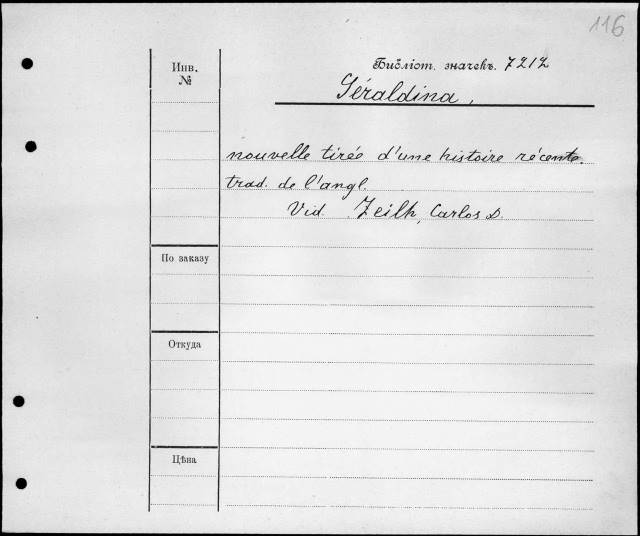 116
Инв.
№
Библіот. значекъ. 7212
Géraldina,
nouvelle tirée d'une histoire récente.
trad. de l'angl.
Vid. Zeilh, Carlos D.
По заказу
Откуда
Цѣна